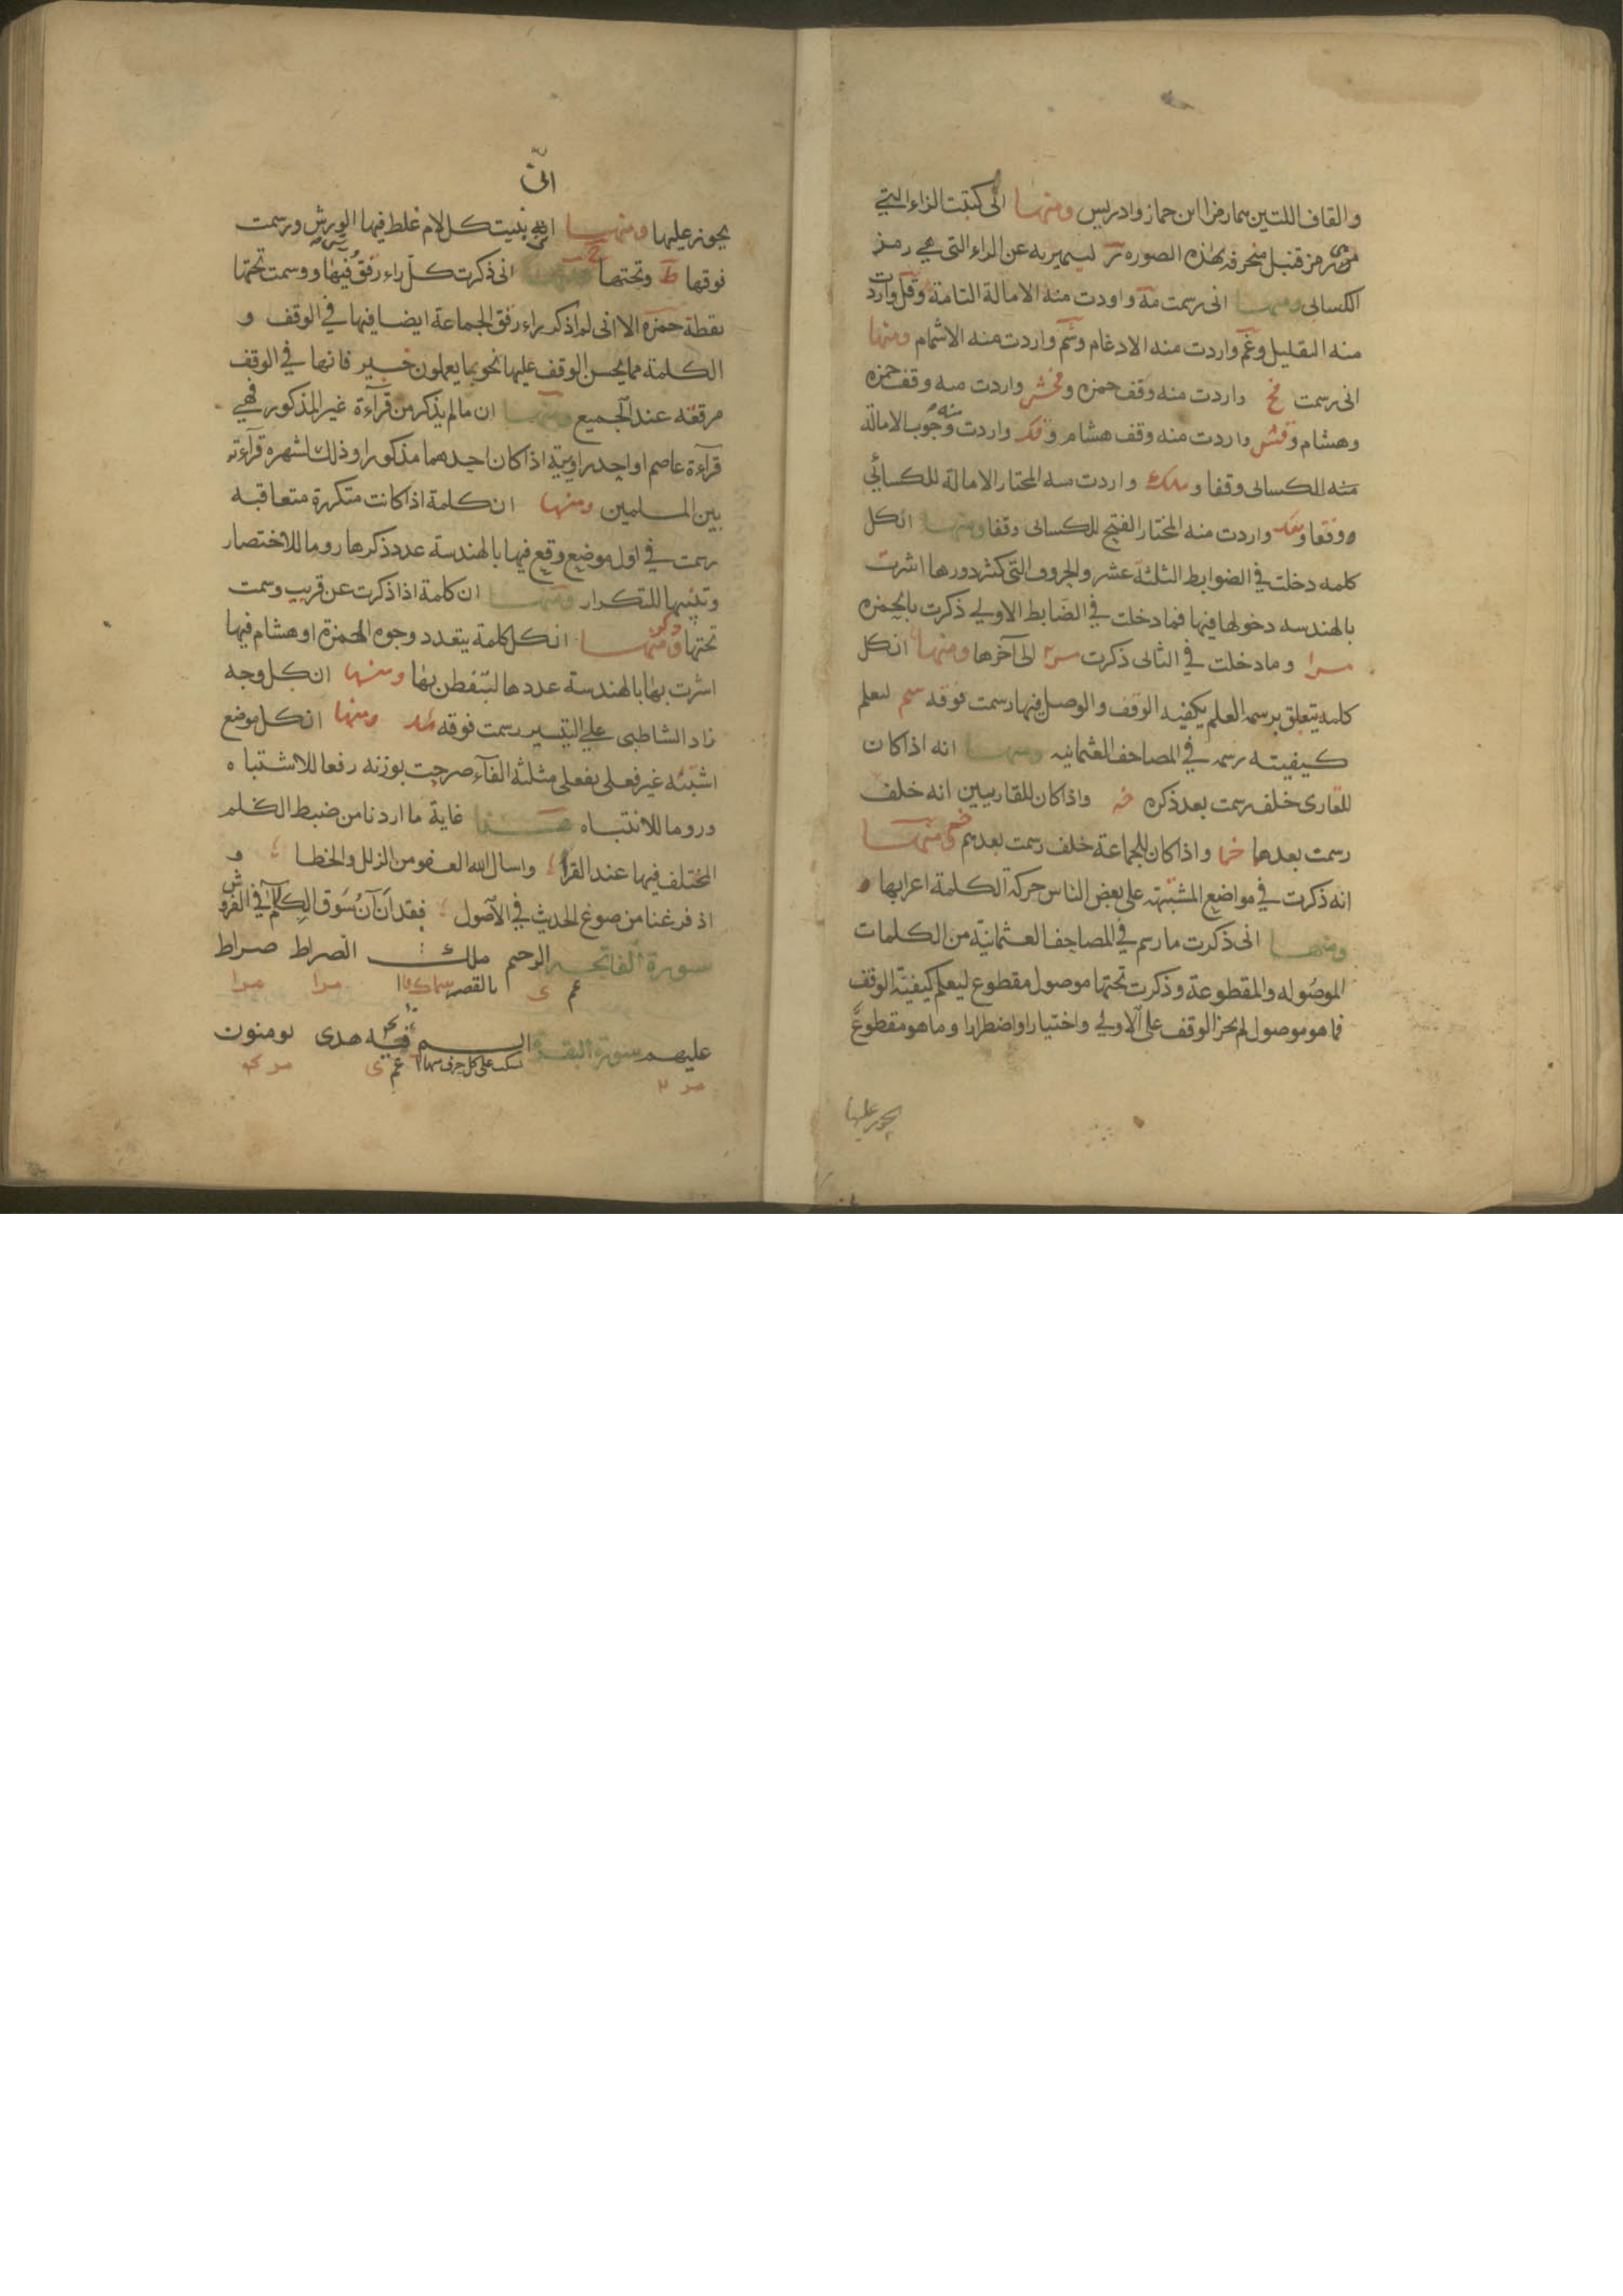 والقاف اللتين هما رمزا ابن جماز وادريس ومنها انى كتبت الزاء التي
هي رمز قنبل منحرفه بهذه الصوره لتميز به عن الراء التى هي رمز
الكسائى ومنها انى رسمت مة واردت منه الامالة التامة وقل واردت
منه التقليل وغم واردت منه الادغام وشم واردت منه الاشمام ومنها
انى رسمت واردت منه وقف حمزه واردت منه وقف حمزه
وهشام وقش واردت منه وقف هشام وفك واردت منه وجوب الامالة
منه للكسائى وقفا واردت منه المختار الامالة للكسائي
وقفا واردت منه المختار الفتح للكسائى وقفا ومنها ان كل
كلمه دخلت في الضوابط الثلثة عشر والحروف التى كثر دورها اشرت
بالهندسه دخولها فيها فما دخلت في الضابط الاولى ذكرت بالحمزه
مرا وما دخلت في الثانى ذكرت الى آخرها ومنها ان كل
كلمه يتعلق برسمه العلم بكيفيه الوقف والوصل فيها رسمت فوقه سم ليعلم
كيفيته رسمه في المصاحف العثمانيه ومنها انه اذا كان
للقارى خلف رسمت بعد ذكره خه واذا كان للقاريين انه خلف
رسمت بعدهما خما واذا كان للجماعة خلف رسمت بعدهم ومنها
انه ذكرت في مواضع المشتبهه على بعض الناس حركة الكلمة اعرابها
ومنها انى ذكرت ما رسم في المصاحف العثمانية من الكلمات
الموصوله والمقطوعة وذكرت تحتها موصول مقطوع ليعلم كيفية الوقف
فما هو موصول لم يجز الوقف على الاولى واختيارا واضطرارا وما هو مقطوع
يجوز عليها
انى
يجوز عليها ومنها بنيت كل لام غلط فيها الورش ورسمت
فوقها ط وتحتها انى ذكرت كل راء رقق فيها ورسمت تحتها
نقطة حمزه الا انى لم اذكر راء رقق الجماعة ايضا فيها في الوقف و
الكلمة مما يحسن الوقف عليها نحو بما يعملون خبير فانها في الوقف
مرققه عند الجميع ومنها ان ما لم يذكر من قرآءة غير المذكور فهي
قرآءة عاصم او احد راوييه اذا كان احدهما مذكورا وذلك لشهره قرآءته
بين المسلمين ومنها ان كلمة اذا كانت متكررة متعاقبه
رسمت في اول موضع وقع فيها بالهندسة عدد ذكرها روما للاختصار
وتنبيها للتكرار ومنها ان كلمة اذا ذكرت عن قريب وسمت
تحتها ومنها ان كل كلمة يتعدد وجوه الحمزة او هشام فيها
اشرت بها بالهندسة عددها لتتفطن بها ومنها ان كل وجه
زاد الشاطبى على التيسير رسمت فوقه ومنها ان كل موضع
اشتبه غير فعلى بفعلى مثلثة الفآء صرحت بوزنه رفعا للاشتباه
وروما للانتباه هذا غاية ما اردنا من ضبط الكلم
المختلف فيها عند القرا واسال الله العفو من الزلل والخطا و
اذ فرغنا من صوغ الحديث في الاصول فقد آن ان نسوق الكلام في الفروش
سورة الفاتحه الرحيم ملك الصراط صراط
غم ى بالقصر مرا مرا
عليهم سورة البقرة الم فيه هدى يومنون
سكت على كل حرف غم ى